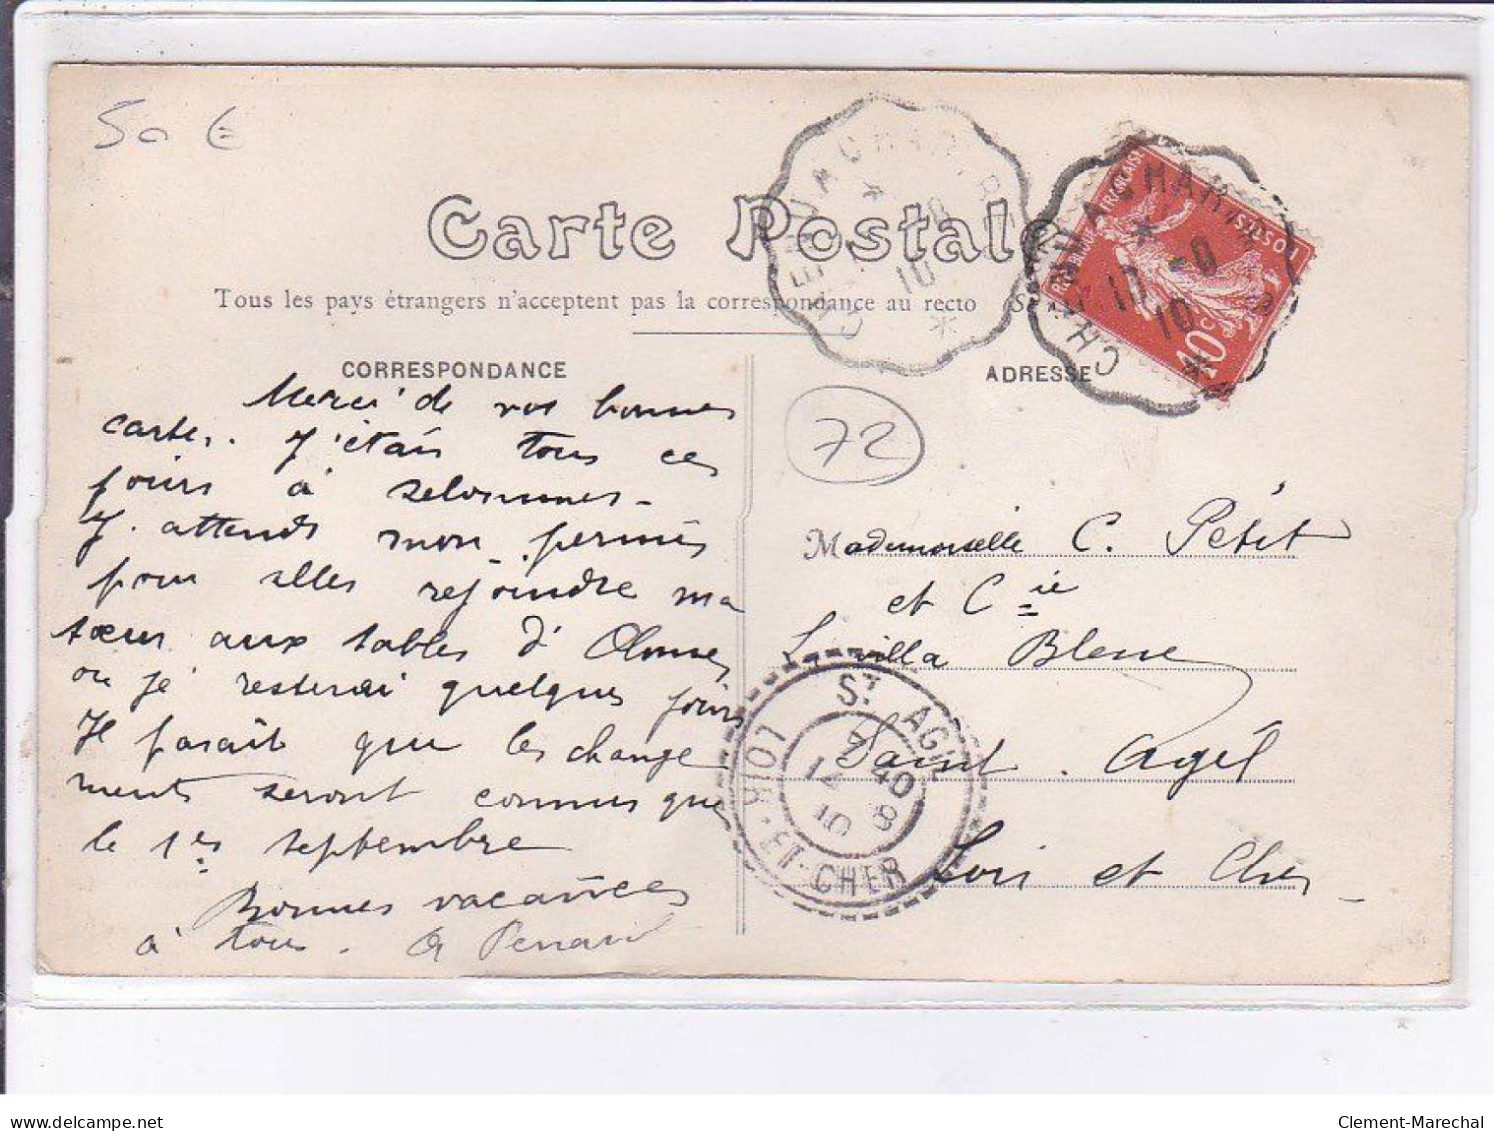 50 €
Carte Postale
Tous les pays étrangers n'acceptent pas la correspondance au recto
CORRESPONDANCE
ADRESSE
POSTES
10c
10 - 8
10
72
Merci de vos bonnes
cartes. J'étais tous ces
jours à
J'attends mon permis
pour aller rejoindre ma
sœur aux sables d'Olonnes
où je resterai quelques jours
Il parait que les change
ments seront connus que
le 1er septembre
Bonnes vacances
à tous.
Mademoiselle C. Petit
et Cie
villa Blene
Saint. Agil
Loir et Cher
ST AGIL
7 40
10 8
LOIR-ET-CHER
Clement-Marechal